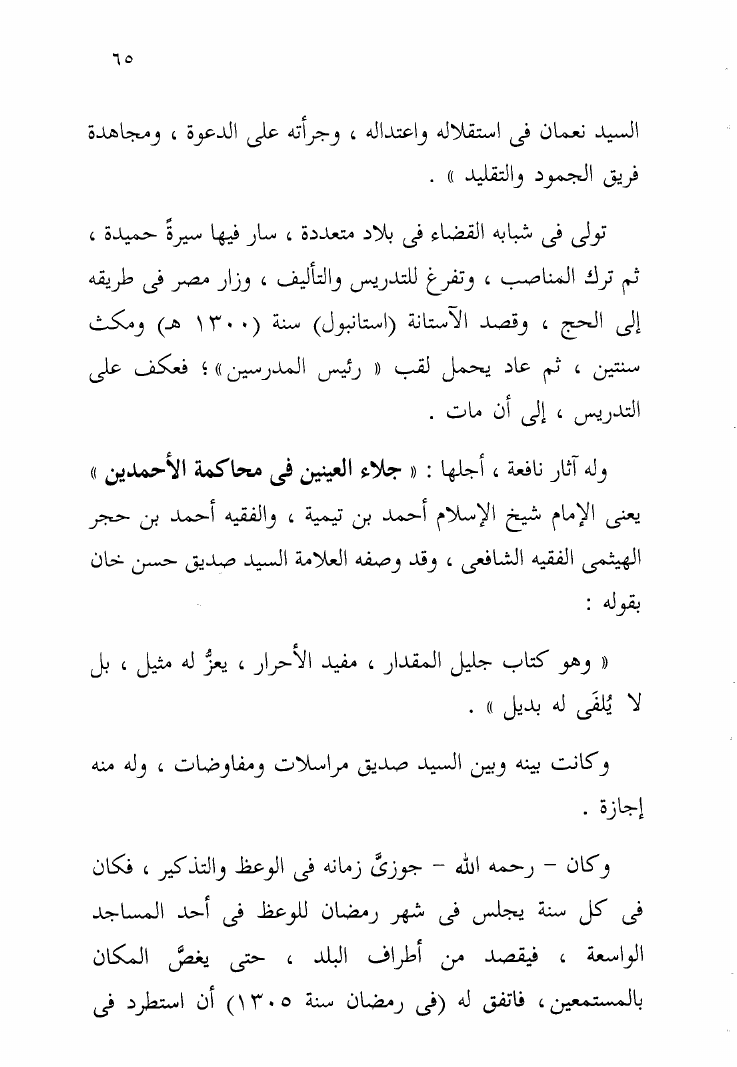 ٦٥
السيد نعمان فى استقلاله واعتداله ، وجرأته على الدعوة ، ومجاهدة
فريق الجمود والتقليد » .
تولى فى شبابه القضاء فى بلاد متعددة ، سار فيها سيرةً حميدة ،
ثم ترك المناصب ، وتفرغ للتدريس والتأليف ، وزار مصر فى طريقه
إلى الحج ، وقصد الآستانة (استانبول) سنة (١٣٠٠ هـ) ومكث
سنتين ، ثم عاد يحمل لقب « رئيس المدرسين» ؛ فعكف على
التدريس ، إلى أن مات .
وله آثار نافعة ، أجلها : « جلاء العينين فى محاكمة الأحمدين »
يعنى الإمام شيخ الإسلام أحمد بن تيمية ، والفقيه أحمد بن حجر
الهيثمى الفقيه الشافعى ، وقد وصفه العلامة السيد صديق حسن خان
بقوله :
« وهو كتاب جليل المقدار ، مفيد الأحرار ، يعزُّ له مثيل ، بل
لا يُلفَى له بديل » .
وكانت بينه وبين السيد صديق مراسلات ومفاوضات ، وله منه
إجازة .
وكان – رحمه الله – جوزىَّ زمانه فى الوعظ والتذكير ، فكان
فى كل سنة يجلس فى شهر رمضان للوعظ فى أحد المساجد
الواسعة ، فيقصد من أطراف البلد ، حتى يغصَّ المكان
بالمستمعين، فاتفق له (فى رمضان سنة ١٣٠٥) أن استطرد فى